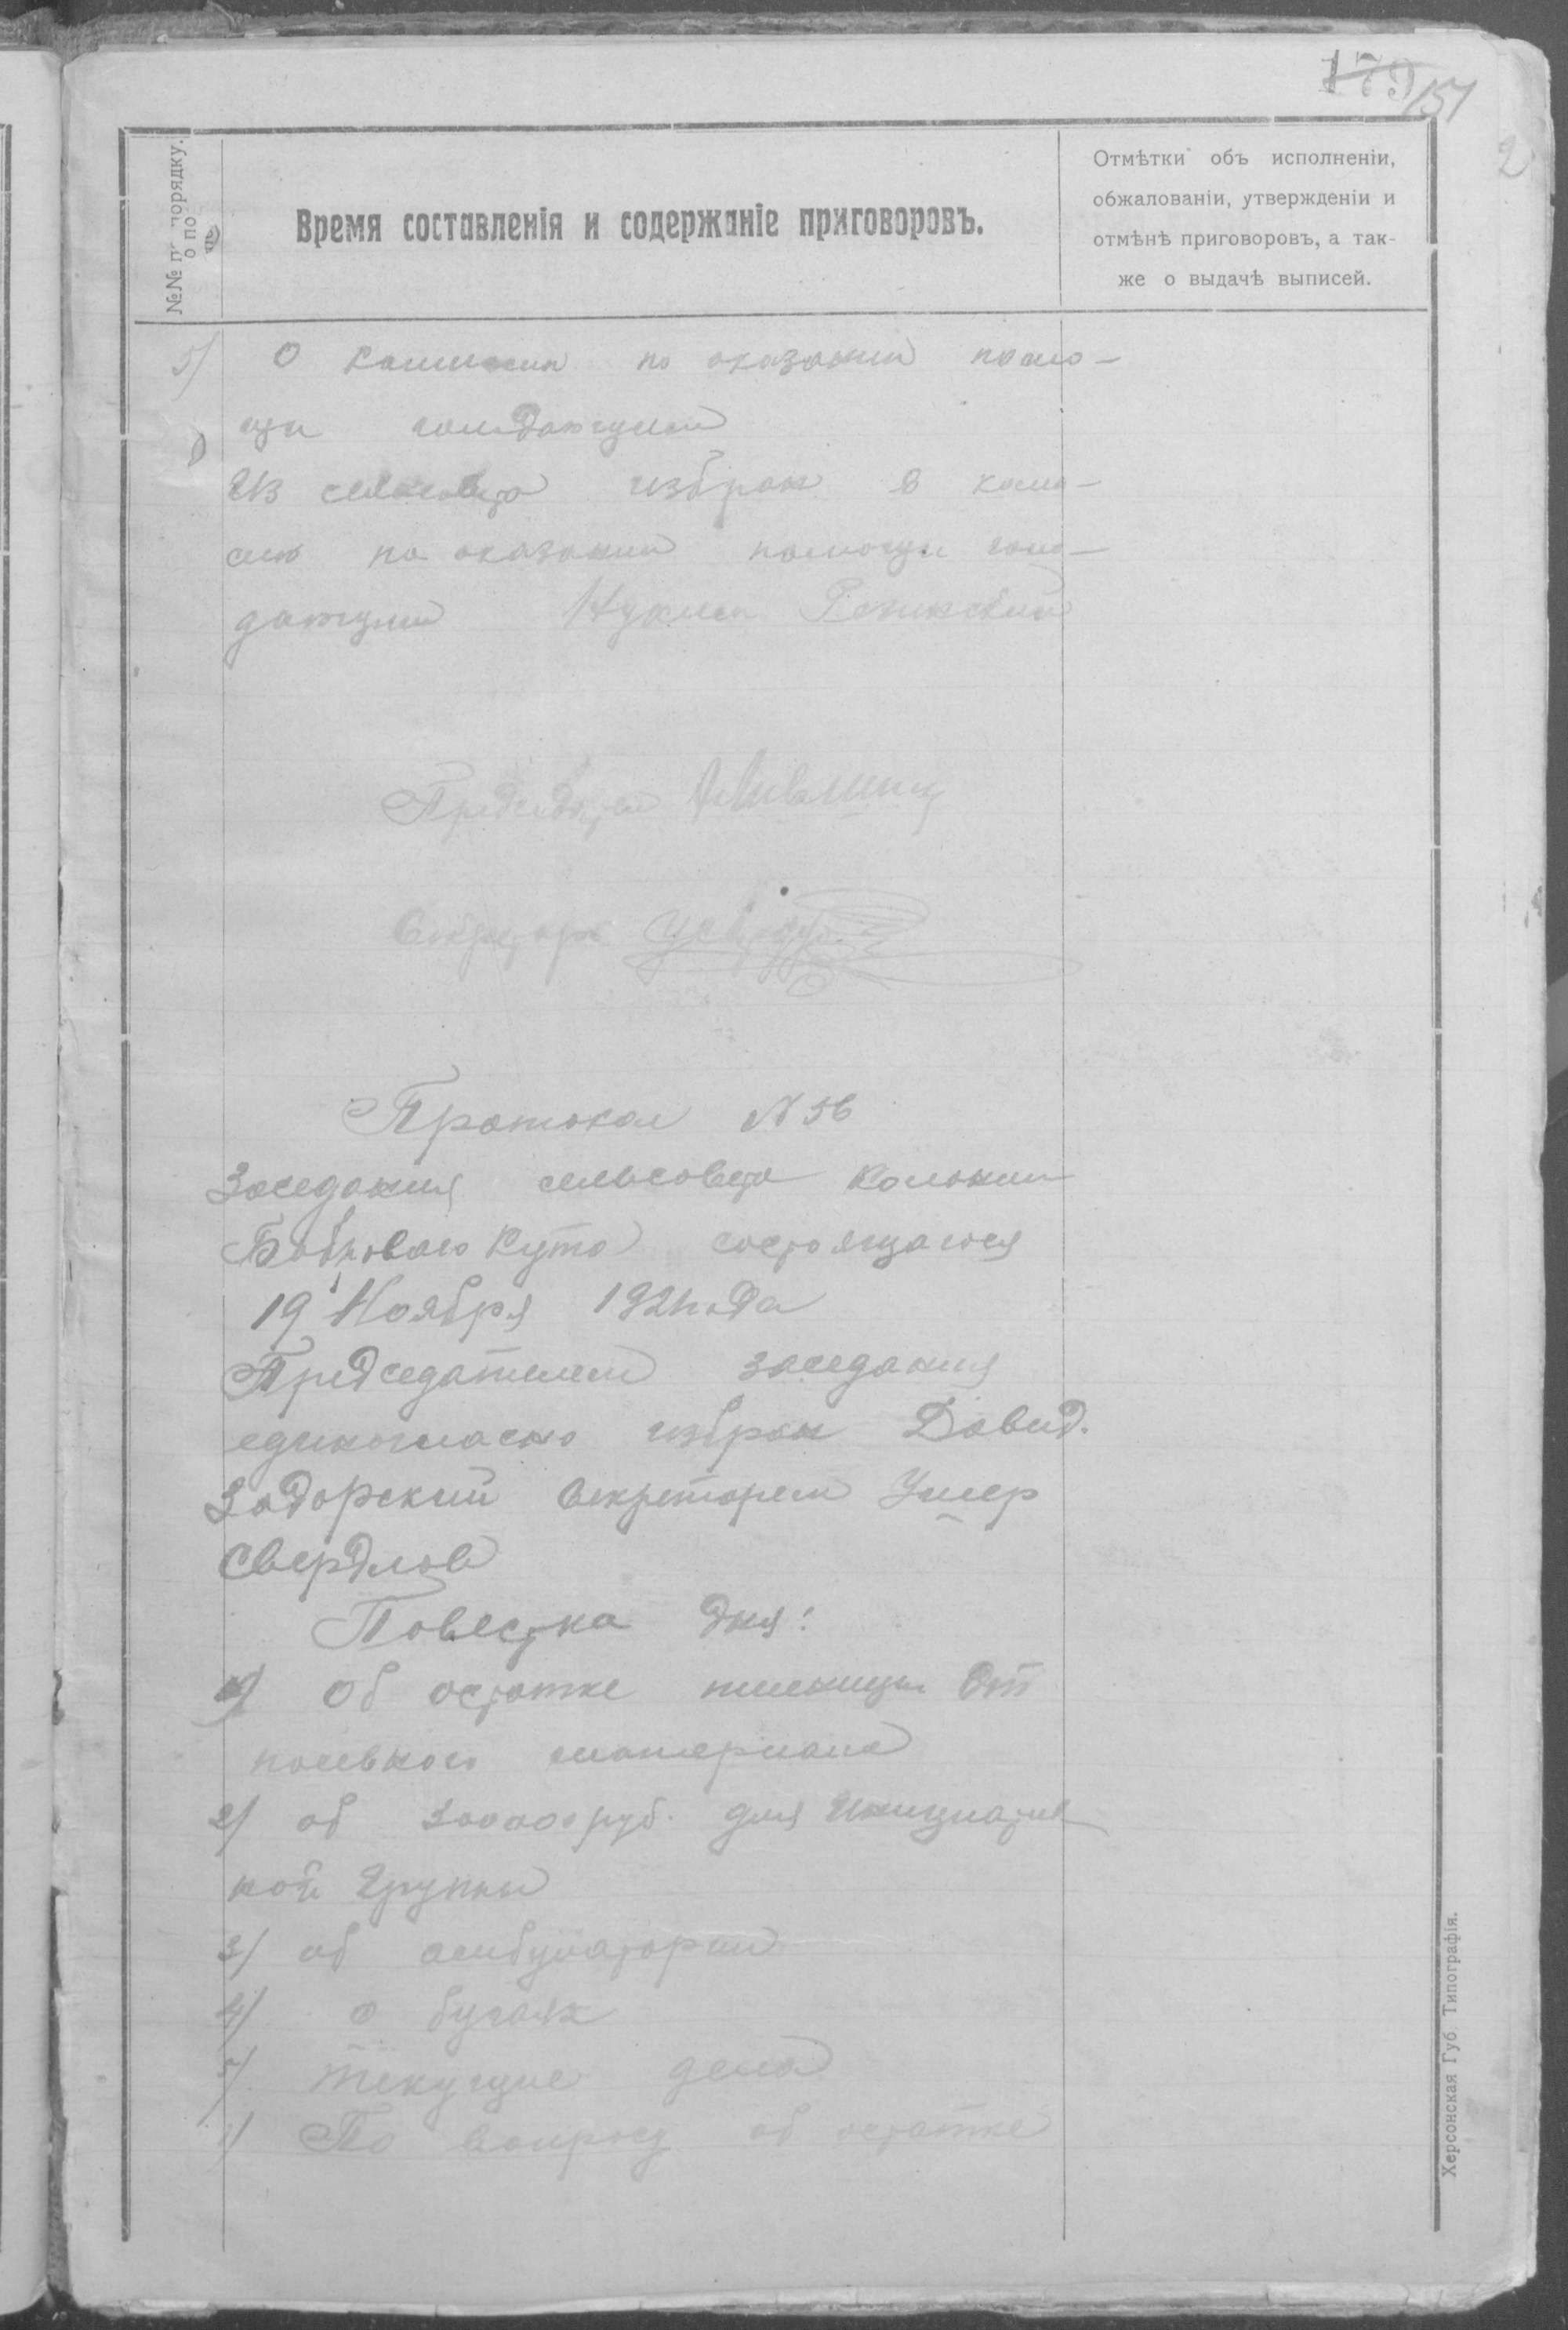 179 151
2
№№ по порядку.
Время составленія и содержаніе приговоровъ.
Отмѣтки объ исполненіи,
обжалованіи, утвержденіи и
отмѣнѣ приговоровъ, а так-
же о выдачѣ выписей.
5/ О комисии по оказании помо-
щи голодающим
Из сельсовета избран в коми-
сию по оказании помощи голо-
дающим Нухим Резинский
Председатель
Секретарь
Протокол N 56
Заседания сельсовета колонии
Бобрового Кута состоящагося
19 Ноября 1921 года
Председателем заседания
единогласно избран Давид.
Задорский Секретарем Ушер
Свердлов
Повестка дня:
1) Об остатке пшеницы От
посевного материала
2/ об 300000 руб. для Инициатив
ной Групы
3/ об амбулатории
4/ о бугаях
5/ текущие дела
1/ По вопросу об остатке
Херсонская Губ. Типографія.